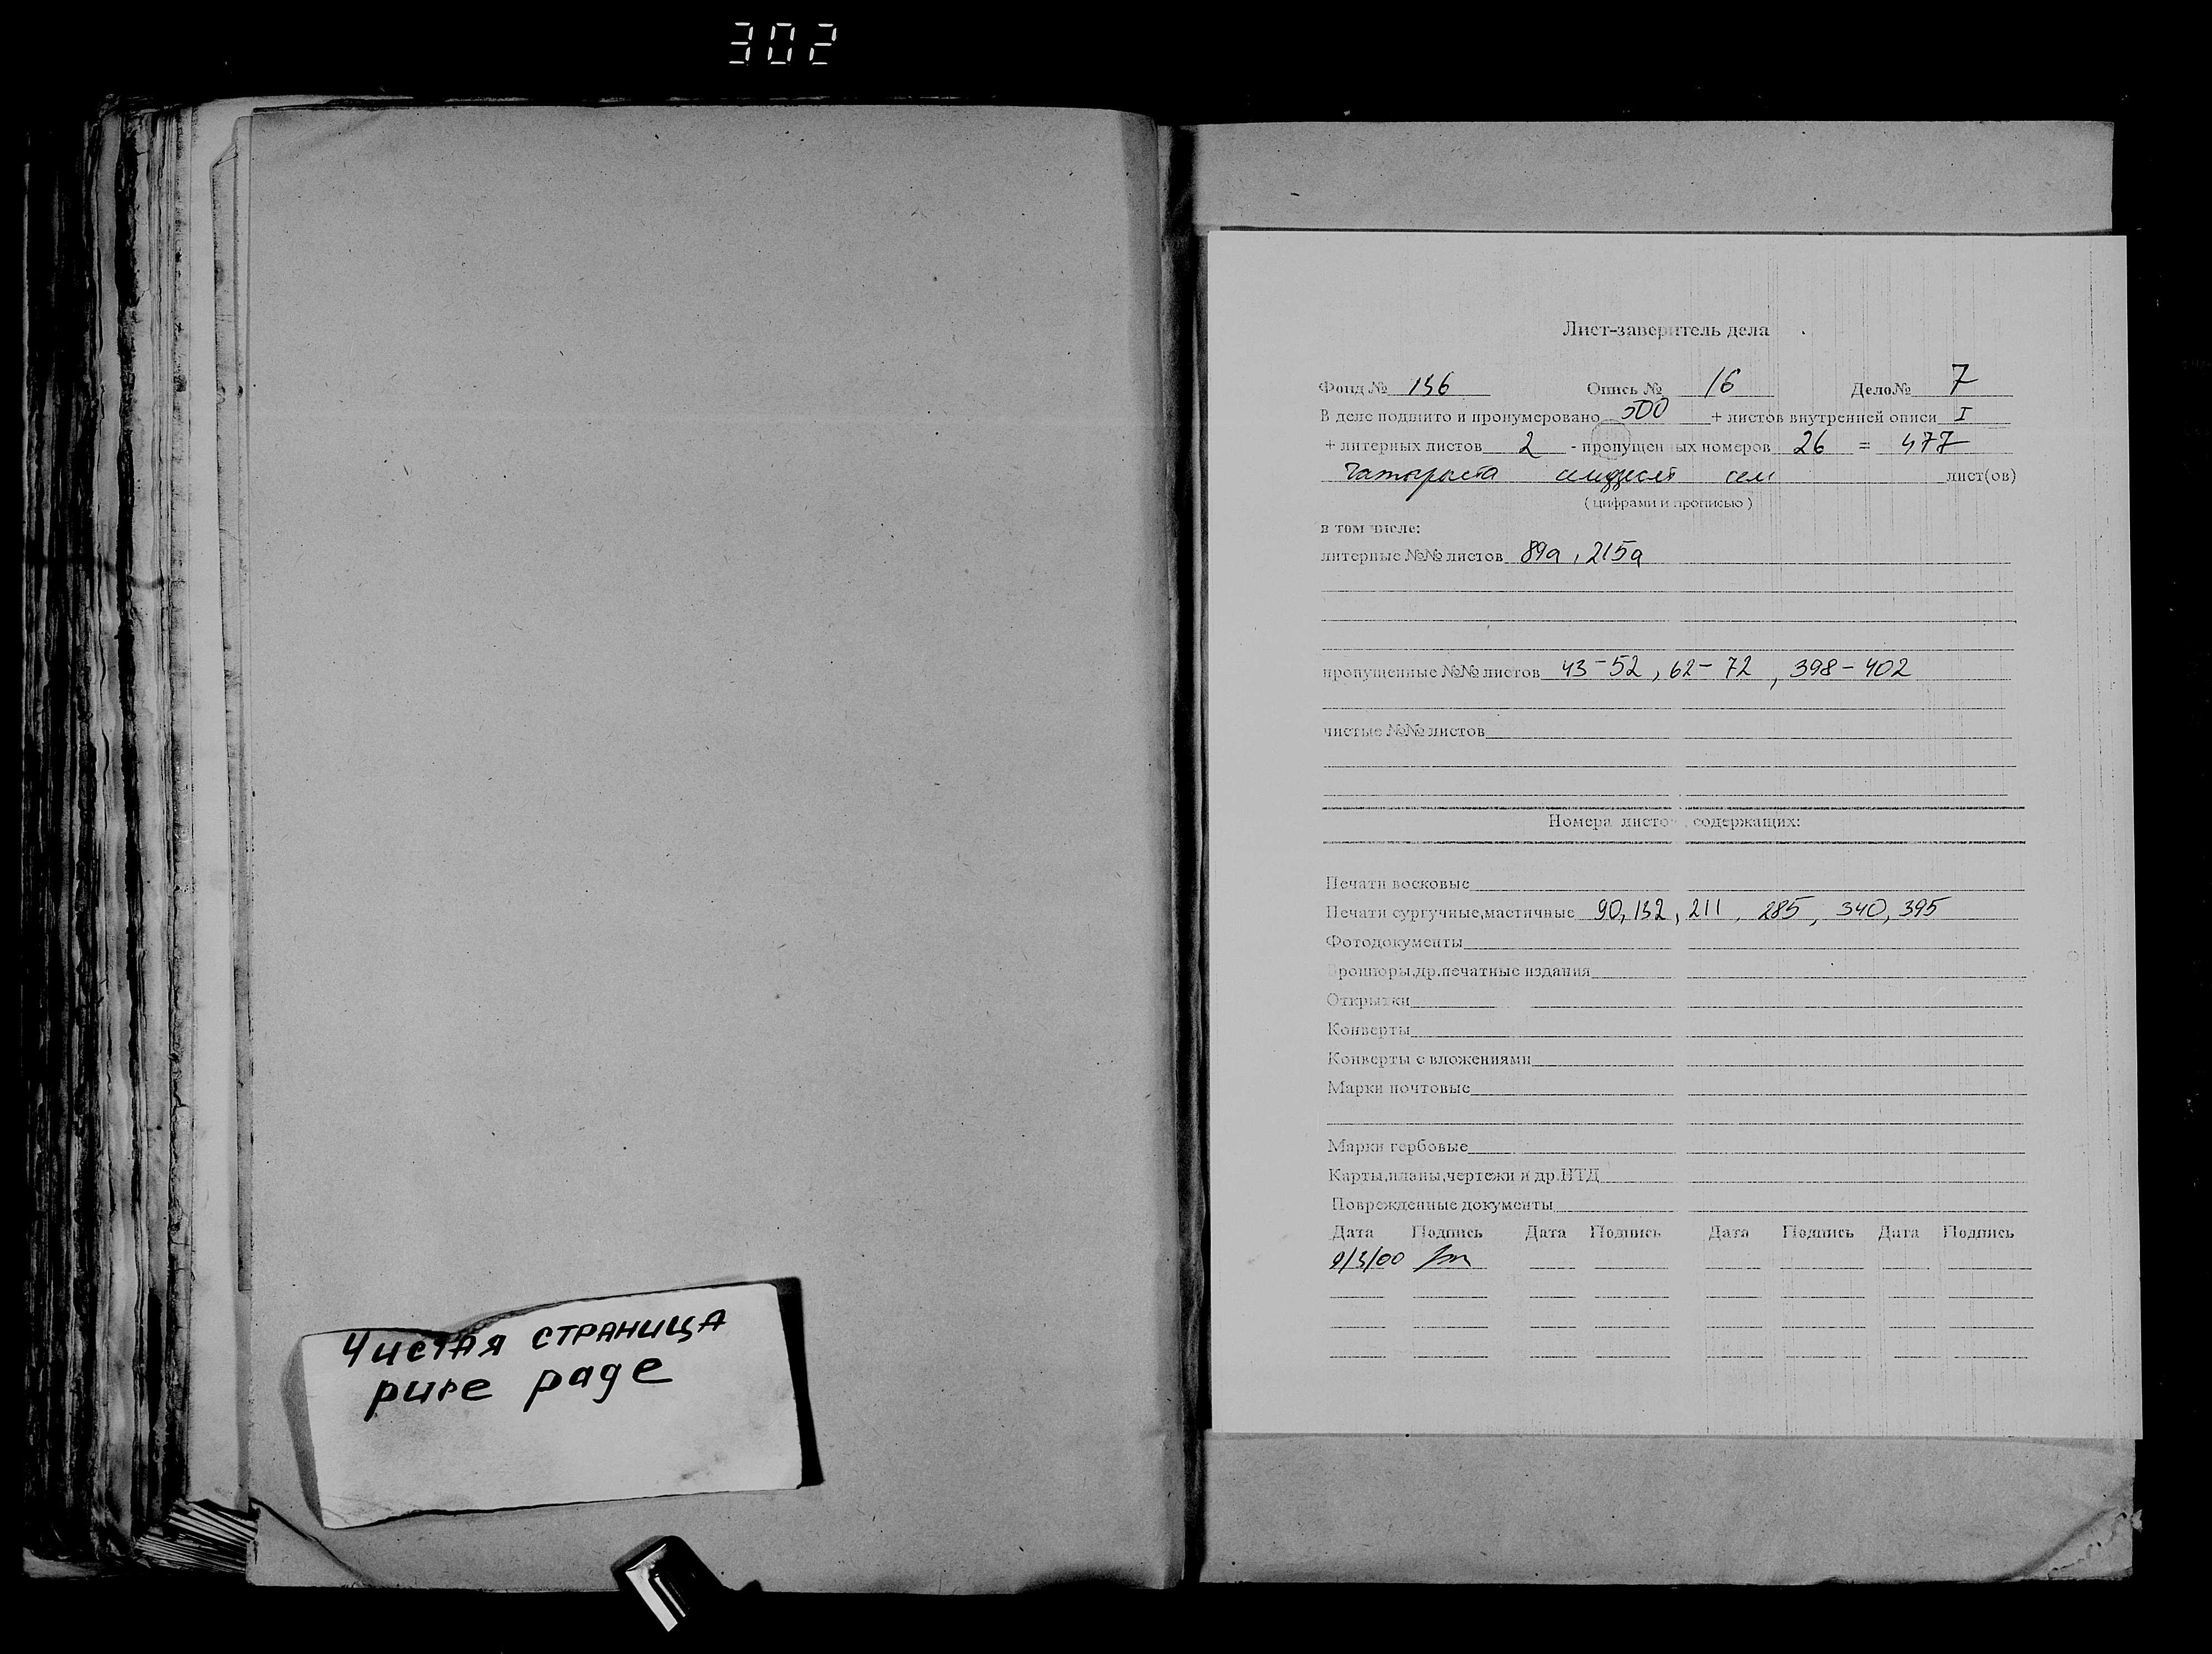 302
Чистая страница
pure page
Лист-заверитель дела
Фонд № 156 Опись № 16 Дело№ 7
В деле подшито и пронумеровано 500 + листов внутренней описи I
+ литерных листов 2 - пропущенных номеров 26 = 477
семьдесят сем лист(ов)
( цифрами и прописью )
в том числе:
литерные №№ листов 89а, 215а
пропущенные №№ листов 43-52, 62-72, 398-402
чистые №№ листов
Номера листов, содержащих:
Печати восковые
Печати сургучные,мастичные 90, 132, 211, 285, 340, 395
Фотодокументы
Брошюры,др.печатные издания
Открытки
Конверты
Конверты с вложениями
Марки почтовые
Марки гербовые
Карты,планы,чертежи и др.НТД
Поврежденные документы
Дата Подпись Дата Подпись Дата Подпись Дата Подпись